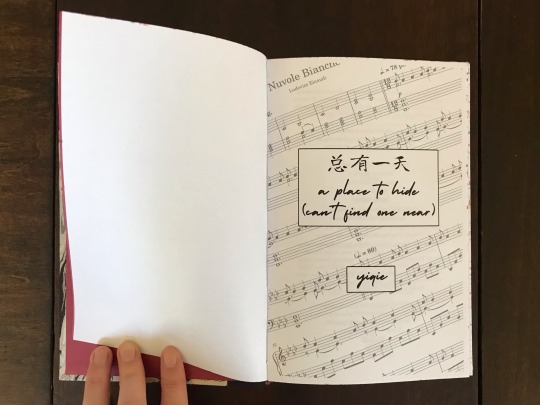 Nuvole Bianche
Ludovico Einaudi
总有一天
a place to hide
(can't find one near)
(♩ = 80)
yiqie